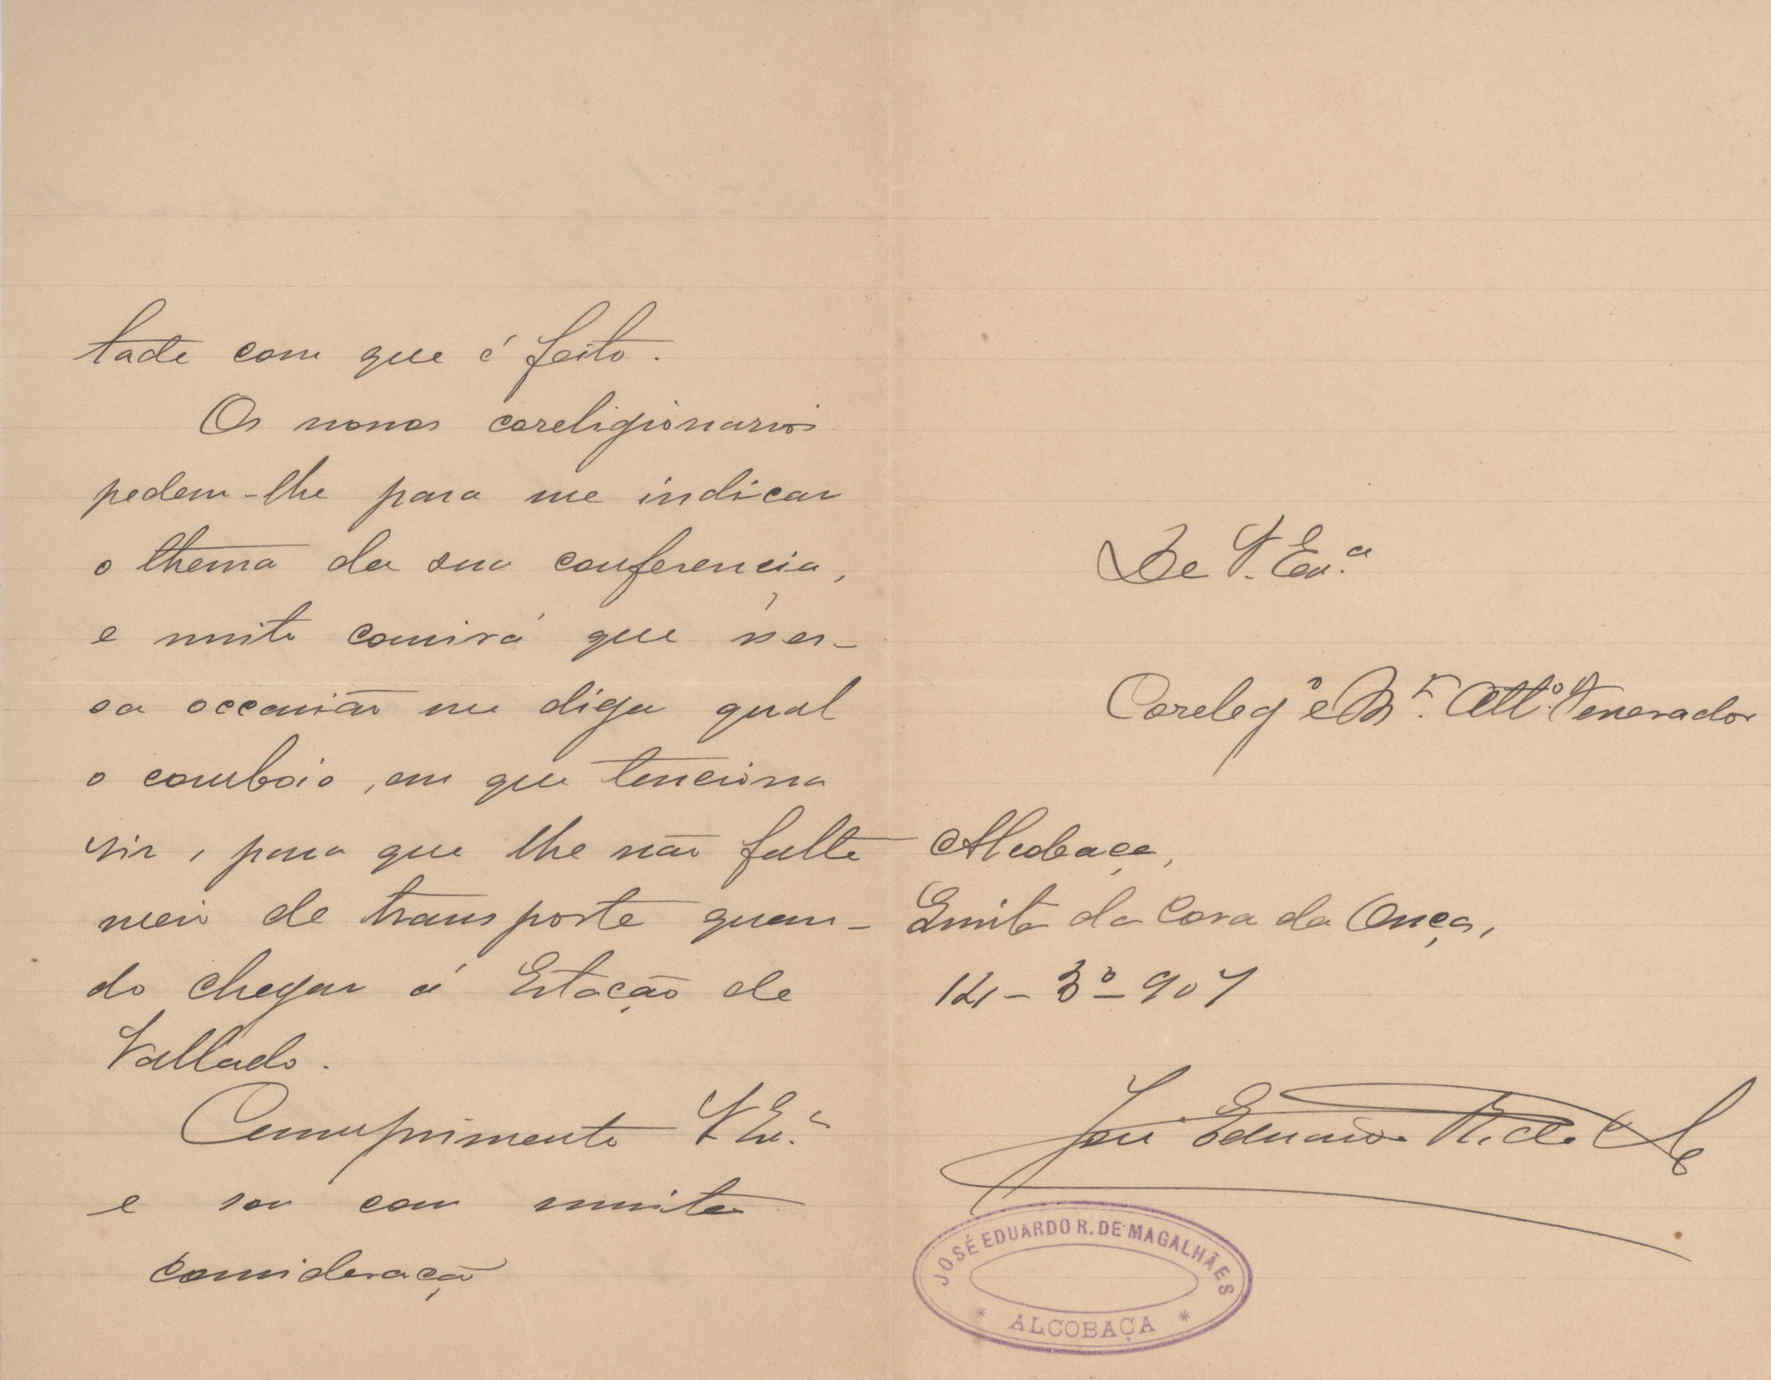 tade com que é feito.
Os nossos coreligionarios
pedem-lhe para me indicar
o thema da sua conferencia,
e muito convirá que n'es-
sa occasião me diga qual
o comboio, em que tenciona
vir, para que lhe não falte
meio de transporte quan-
do chegar á Estação de
Vallado.
Cumprimento V. Ex.ª
e sou com muita
consideração
De V. Ex.ª
Coreleg.º e M.to Att.º Venerador
Alcobaça,
Quinta da Cova da Onça,
14-3º-907
José Eduardo R. de
JOSÉ EDUARDO R. DE MAGALHÃES
* ALCOBAÇA *